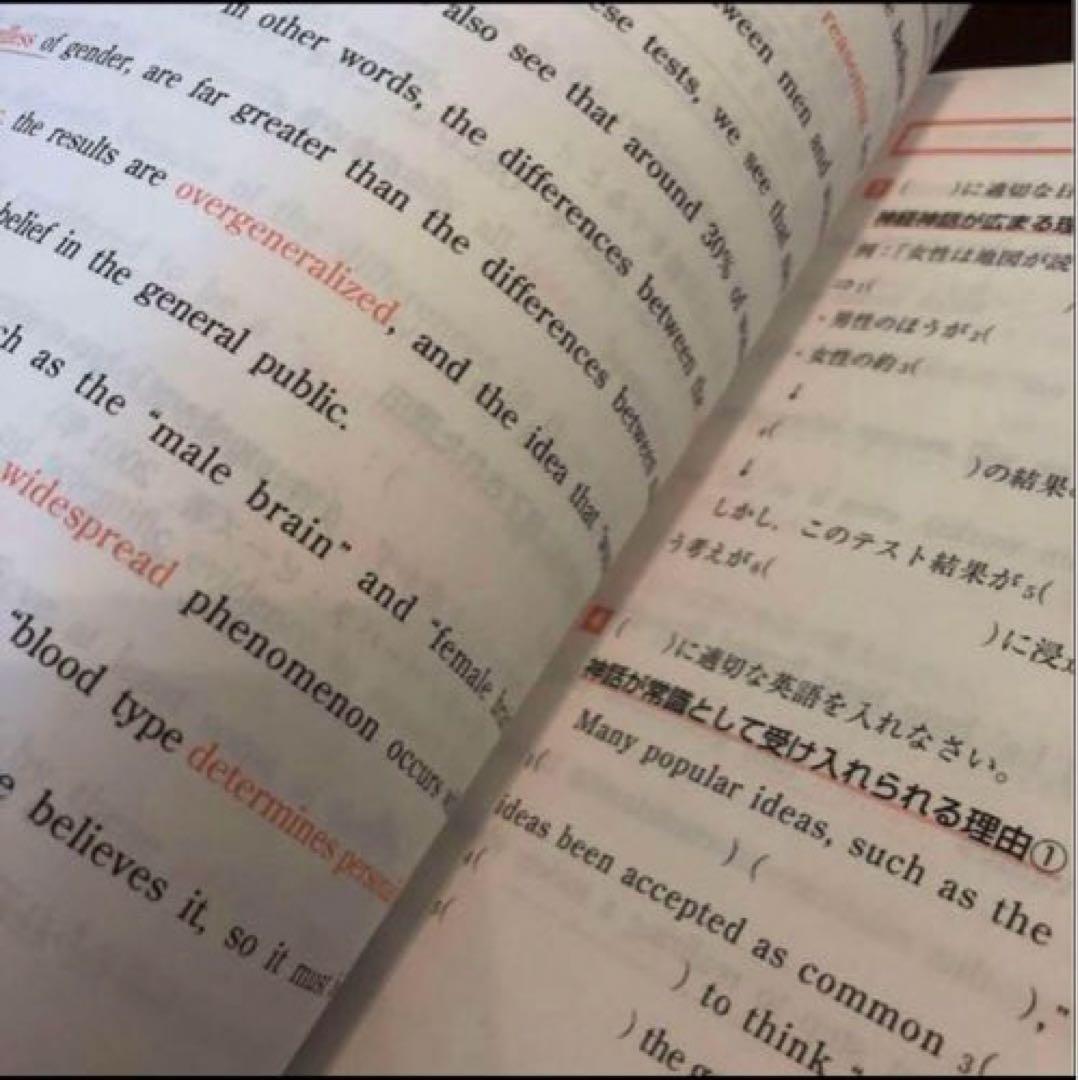 reasoning
between men and
these tests, we see that
also see that around 30% of
In other words, the differences between the
of gender, are far greater than the differences between
the results are overgeneralized, and the idea that
belief in the general public.
as the “male brain” and “female
widespread phenomenon occurs
“blood type determines
believes it, so it must
( )に適切な
神経神話が広まる理
例：「女性は地図が読
⇒1( )
・男性のほうが2(
・女性の約3(
↓
4( )の結果
↓
しかし，このテスト結果が5(
う考えが6( )に浸
4 ( )に適切な英語を入れなさい。
神話が常識として受け入れられる理由①
Many popular ideas, such as the
( ) ( ),”
ideas been accepted as common 3(
4( ) to think “
5( ) the